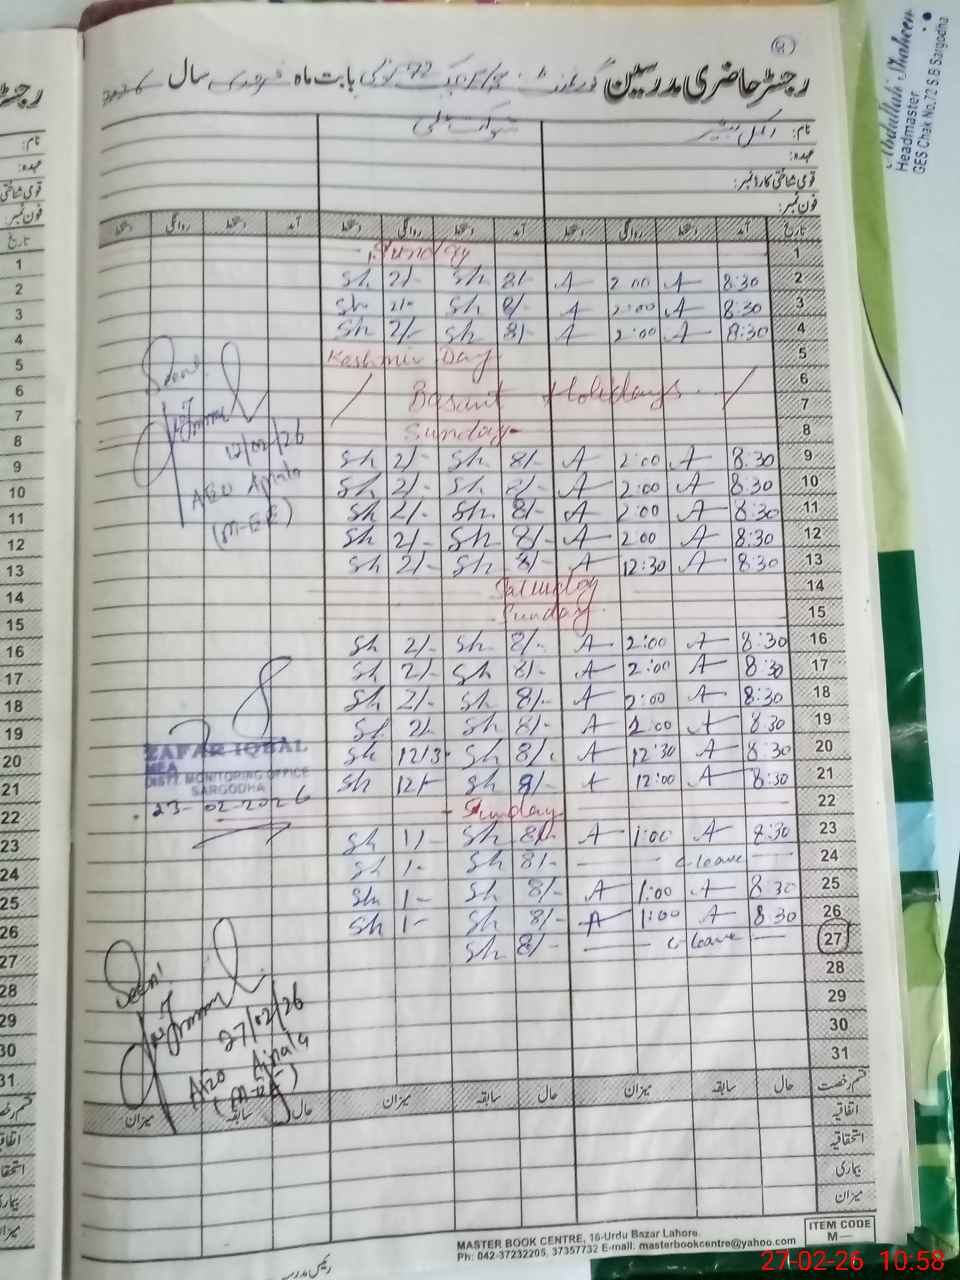 رجسٹر حاضری مدرسین گورنمنٹ 72 بابت ماہ فروری سال
نام:
عہدہ:
قومی شناختی کارڈ نمبر:
فون نمبر:
تاریخ آمد دستخط روانگی دستخط آمد دستخط روانگی دستخط آمد دستخط روانگی دستخط
1 Sunday
2 8:30 A 2:00 A 8/- Sh 2/- Sh
3 8:30 A 2:00 A 8/- Sh 2/- Sh
4 8:30 A 2:00 A 8/- Sh 2/- Sh
5 Keshmir Day
6 Basant Holidays
7
8 Sunday
9 8:30 A 2:00 A 8/- Sh 2/- Sh
10 8:30 A 2:00 A 8/- Sh 2/- Sh
11 8:30 A 2:00 A 8/- Sh 2/- Sh
12 8:30 A 2:00 A 8/- Sh 2/- Sh
13 8:30 A 12:30 A 8/- Sh 2/- Sh
14 Saturday
15 Sunday
16 8:30 A 2:00 A 8/- Sh 2/- Sh
17 8:30 A 2:00 A 8/- Sh 2/- Sh
18 8:30 A 2:00 A 8/- Sh 2/- Sh
19 8:30 A 2:00 A 8/- Sh 2/- Sh
20 8:30 A 12:30 A 8/- Sh Sh
21 8:30 A 12:00 A Sh 12/- Sh
22 Sunday
23 8:30 A 1:00 A 8/- Sh 1/- Sh
24 C-leave 8/- Sh 1- Sh
25 8:30 A 1:00 A 8/- Sh 1- Sh
26 8:30 A 1:00 A 8/- Sh 1- Sh
27 C-leave 8/- Sh
28
29
30
31
قسم رخصت حال سابقہ میزان حال سابقہ میزان حال سابقہ میزان
اتفاقیہ
استحقاقیہ
بیماری
میزان
Seen
12/02/26
AEO Ajnala
(M-EE)
ZAFAR IQBAL
MEA
DISTT MONITORING OFFICE
SARGODHA
23-02-2026
Seen
27/02/26
AEO Ajnala
(M-EE)
رئیس مدرسہ
MASTER BOOK CENTRE, 16-Urdu Bazar Lahore.
Ph: 042-37232205, 37357732 E-mail: masterbookcentre@yahoo.com
ITEM CODE
M—
Abdullah Shaheen
Headmaster
GES Chak No.72 S.B Sargodha
27-02-26 10:58